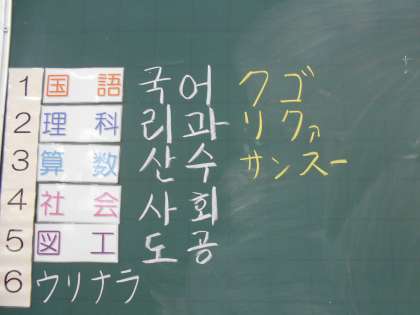 1 国語 국어 クゴ
2 理科 리과 リクァ
3 算数 산수 サンスー
4 社会 사회
5 図工 도공
6 ウリナラ